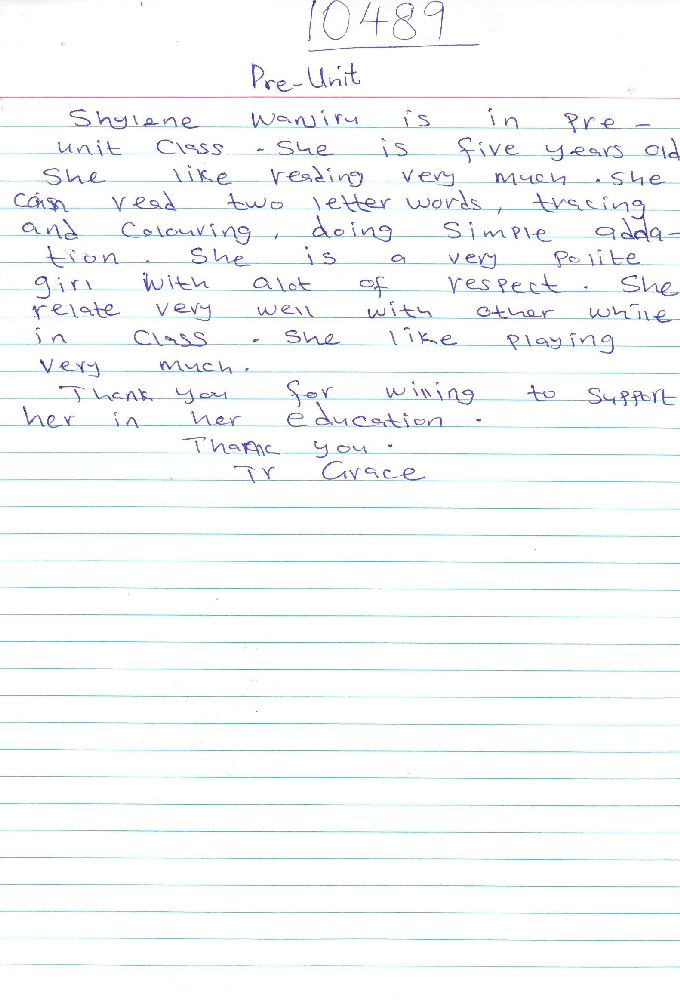 10489
Pre-Unit
Shylene Wanjiru is in pre-
unit Class. She is five years old
She like reading very much. she
can read two letter words, tracing
and Colouring, doing Simple adda-
tion. She is a very polite
girl with alot of respect. She
relate very well with other while
in Class. She like playing
very much.
Thank you for wining to support
her in her education.
Thank you.
Tr Grace